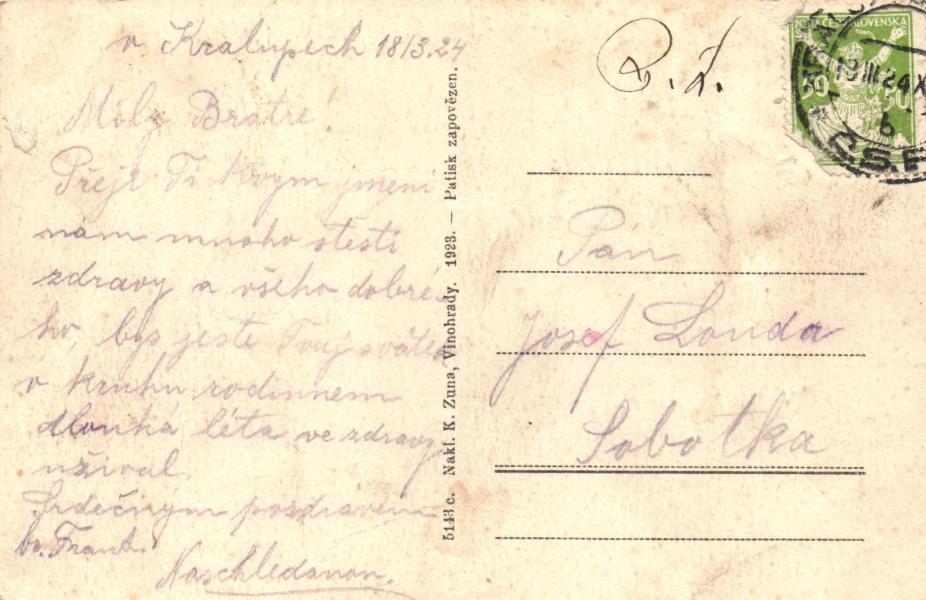 v Kralupech 18/3.24
Milý Bratře!
Přeje Ti k Tvým jmení
nám mnoho stestí
zdravy a všeho dobré
ho, bys jeste Tvuj sváte
v kruhu rodinnem
dlouhá léta ve zdravy
užíval.
Srdečným pozdravem
br. Frant.
Naschledanou.
5143 c. Nakl. K. Zuna, Vinohrady. 1923. — Patisk zapovězen.
P. T.
Pán
Josef Louda
Sobotka
POŠTA ČESKOSLOVENSKÁ
50 50
18 III 24 X
6
Č.S.P.